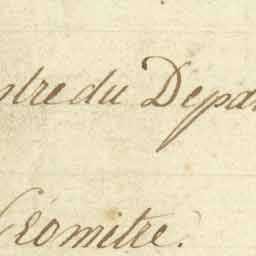 stre du Depar
Géomètre.